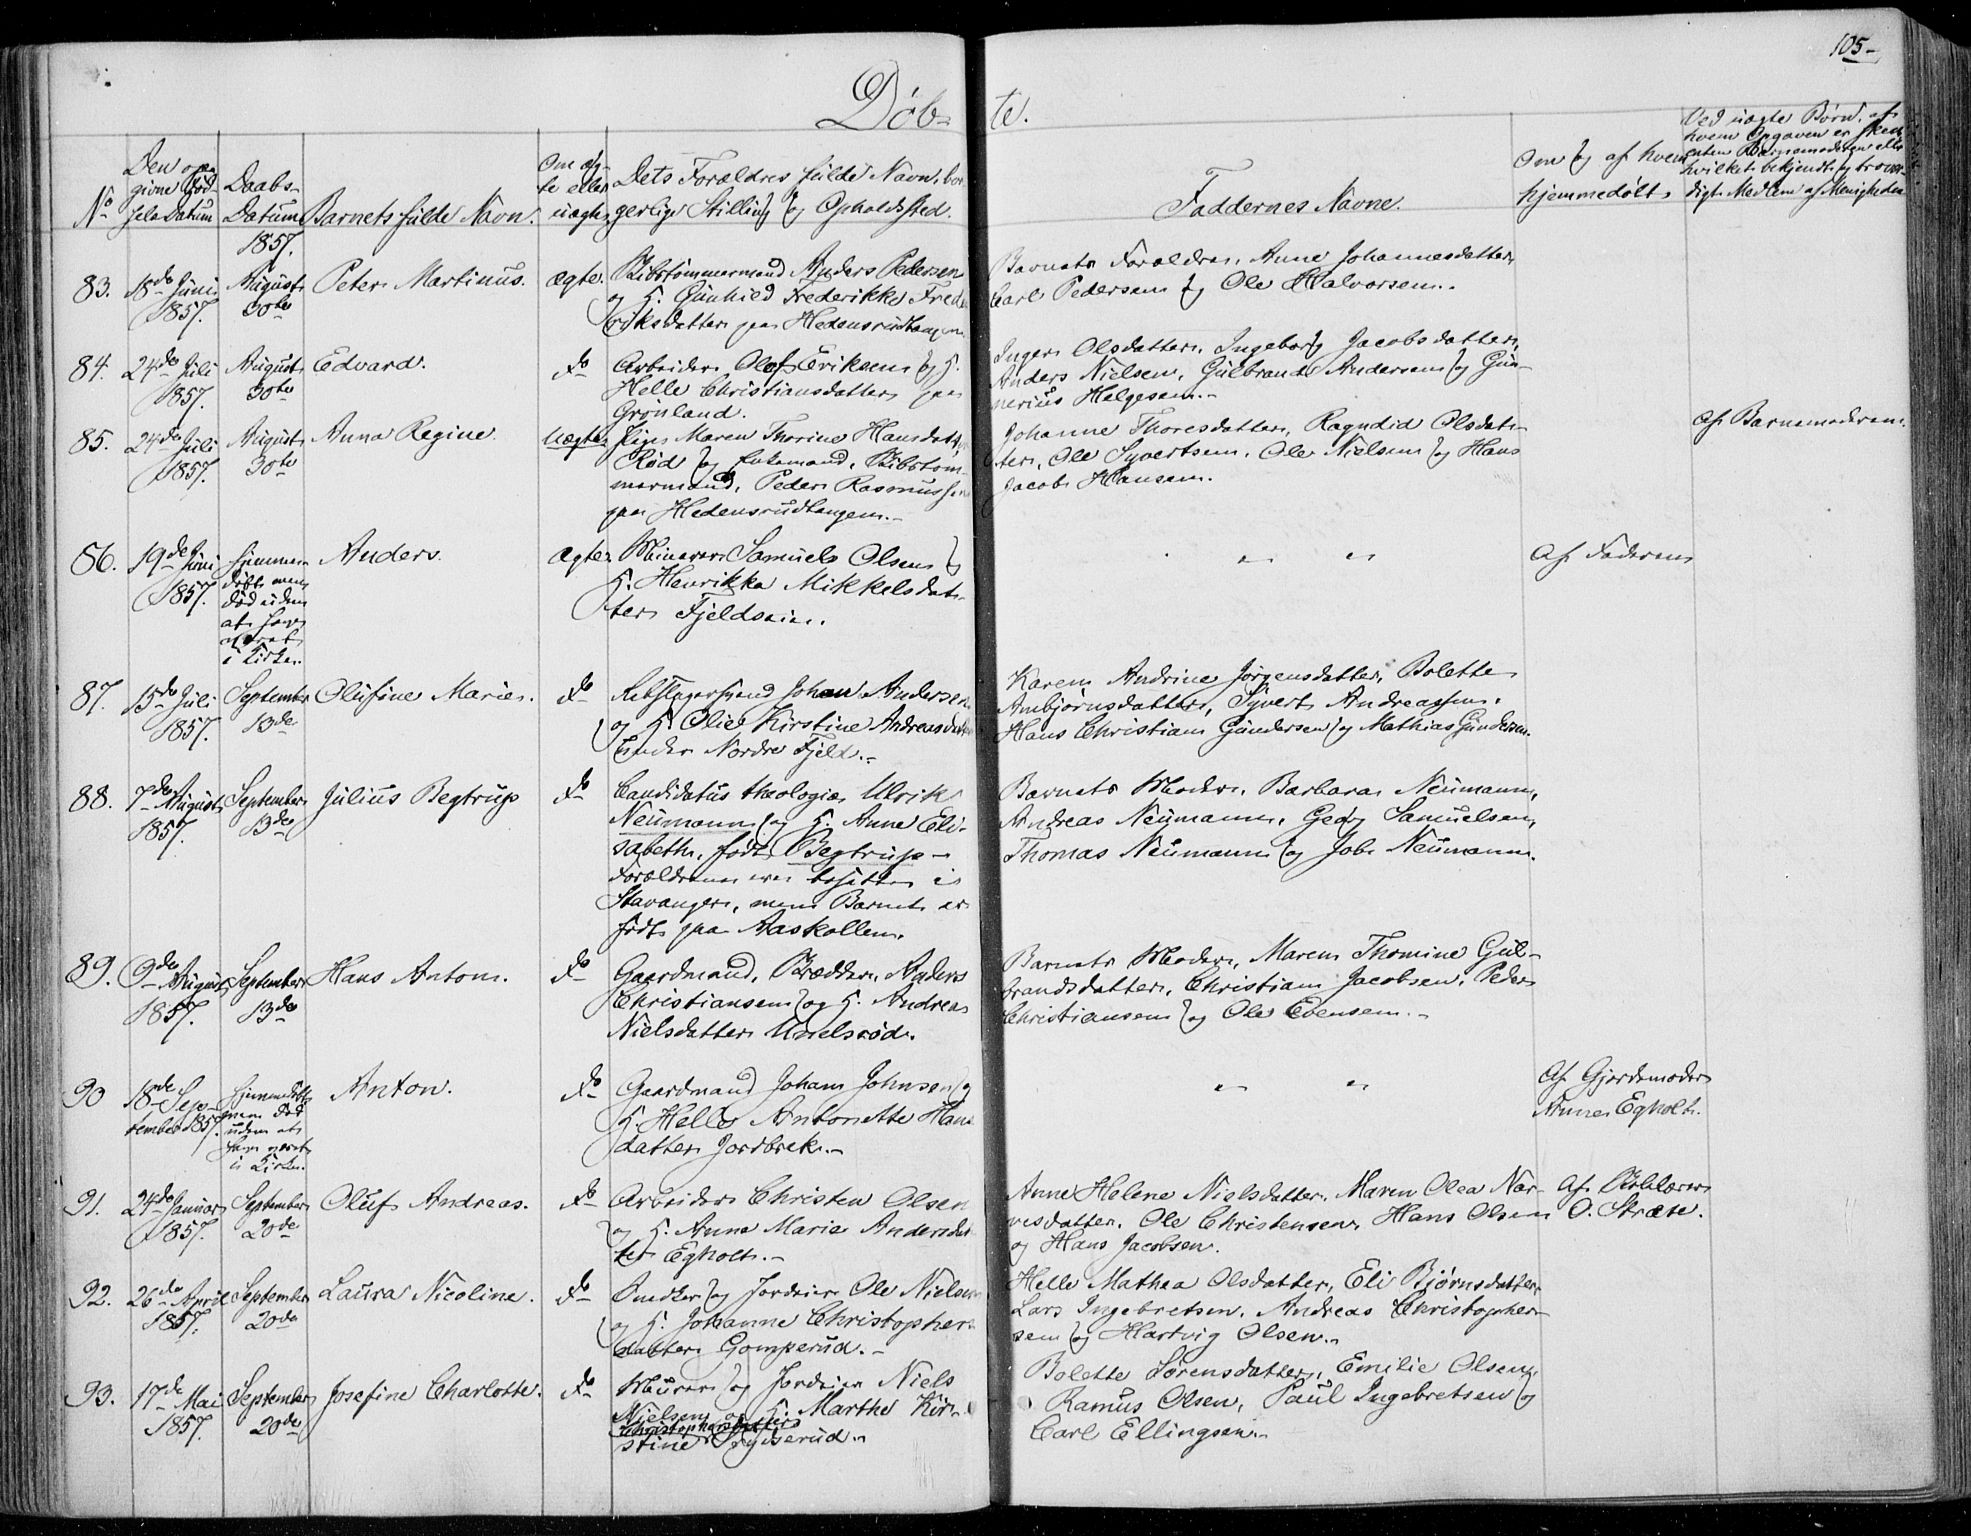 105-
Døb-
te.
No
Den opgivne Fødselsdatum
Daabs-
Datum
1857.
Barnets fulde Navn.
Om ægte eller uægte
Dets Forældres fulde Navn, borgerlige Stilling og Opholdssted.
Faddernes Navne.
Om og af hvem
hjemmedøbt
Ved uægte Børn, af
hvem Opgaven er skeet
enten Barnemoderen eller
hvilket bekjendt og troværdigt Medlem af Menigheden
83.
18de Juni
1857.
August
30te
Peter Martinus.
ægte.
Skibstømmermand Anders Pedersen
og H. Gunhild Frederikke Frede-
riksdatter paa Hedensrudtangen
Barnets Forældre, Anne Johannesdatter,
Carl Pedersen og Ole Halvorsen.
84.
24de Juli
1857.
August
30te
Edvard.
do
Arbeider Olof Eriksen og H.
Helle Christiansdatter paa
Grønland.
Inger Olsdatter, Ingeborg Jacobsdatter,
Anders Nielsen, Gulbrand Andersen og Gun-
nerius Helgesen.-
85.
24de Juli
1857.
August
30te
Anna Regine.
Uægte
Pige Maren Thorine Hansdatt.
Rød og Enkemand, Skibstøm-
mermand, Peder Rasmussen
paa Hedensrudtangen.-
Johanne Thoresdatter, Ragndid Olsdat-
ter, Ole Syvertsen, Ole Nielsen og Hans
Jacob Hansen.
Af Barnemoderen.
86.
19de Juni
1857.
hjemme-
døbt men
død uden
at have
været
i Kirke.
Anders.
ægte
Minerer Samuel Olsen og
H. Henrikka Mikkelsdat-
ter Fjeldseie.
" "
Af Faderen
87.
15de Juli
1857.
September
13de
Olufine Marie.
do
Rebslagersvend Johan Andersen
og H. Olie Kirstine Andreasdatter
under Nordre Fjeld.-
Karen Andrine Jørgensdatter, Bolette
Anbjørnsdatter, Syvert Andreassen,
Hans Christian Gundersen og Mathias Gundersen.
88.
7de August
1857.
September
13de
Julius Begtrup
do
Candidatus theologiæ Ulrik
Neumann og H. Anne Eli-
sabeth, født Begtrup -
Forældrene ere bosatte i
Stavanger, men Barnet er
født paa Aaskollen.
Barnets Moder, Barbara Neumann,
Andreas Neumann, Georg Samuelsen,
Thomas Neumann og Job Neumann.
89.
9de August
1857.
September
13de
Hans Anton.
do
Gaardmand, Anders
Christiansen og H. Andrea
Nielsdatter Unelsrød.
Barnets Moder, Maren Thomine Gul-
brandsdatter, Christian Jacobsen, Peder
Christiansen og Ole Ebensen.-
90
18de Sep-
tember 1857.
hjemmedøbt
men død
uden at
have været
i Kirke.
Anton.
do
Gaardmand Johan Johnsen og
H. Helle Antonette Hans-
datter Jordbrek.-
" "
Af Gjordemoder
Anne Egholt.
91.
24de Januar
1857.
September
20de
Oluf Andreas.
do
Arbeider Christen Olsen
og H. Anne Marie Andersdat-
ter Egholt.-
Anne Helene Nielsdatter, Maren Olea Nar-
vesdatter, Ole Christensen, Hans Olsen
og Hans Jacobsen.
Af Skolelærer
O. Stræte.
92.
26de April
1857.
September
20de
Laura Nicoline.
do
Snedker og Jordeier Ole Nielsen
og H. Johanne Christophers-
datter Gomperud.-
Helle Mathea Olsdatter, Eli Bjørnsdatter,
Lars Ingebretsen, Andreas Christopher-
sen og Hartvig Olsen.-
93.
17de Mai
1857.
September
20de
Josefine Charlotte.
do
Murer og Jordeier Niels
Nielsen og H. Marthe Kir-
Christophersdatter
stine
Bolette Sørensdatter, Emilie Olsen,
Ramus Olsen, Paul Ingebretsen og
Carl Ellingsen.-